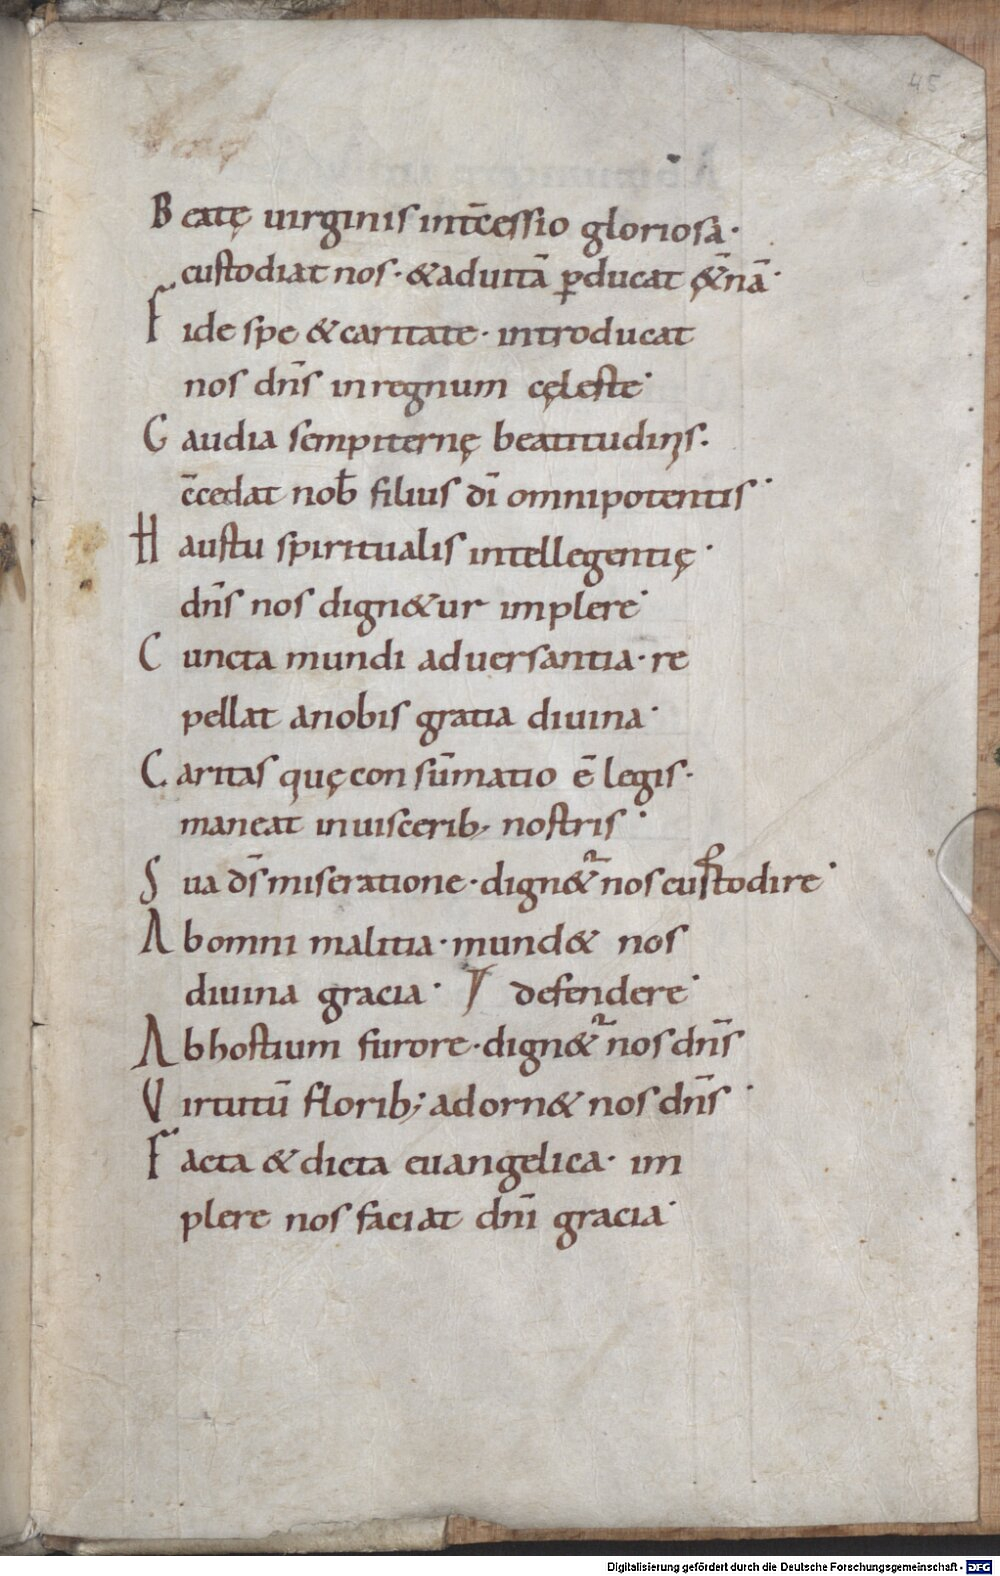 45
Beatę uirginis int̄cessio gloriosa·
custodiat nos· & aduitā ꝑducat &̄nā·
Fide spe & caritate· introducat
nos dn̄s inregnum cęleste·
Gaudia sempiternę beatitudinis·
c̄cedat nob̄ filius dī omnipotentis·
Haustu spiritualis intellegentię·
dn̄s nos dign&ur implere·
Cuncta mundi aduersantia· re
pellat anobis gratia diuina·
Caritas quęconsūmatio ē legis·
maneat inuisceribꝫ nostris·
Sua ds̄ miseratione· dign&ᷣ nos custodire·
Abomni malitia· mund& nos
diuina gracia· defendere·
Abhostium furore· dign&ᷣ nos dn̄s
Uirtutū floribꝫ adorn& nos dn̄s·
Facta & dicta euangelica· im
plere nos faciat dnī gracia·
Digitalisierung gefördert durch die Deutsche Forschungsgemeinschaft - DFG